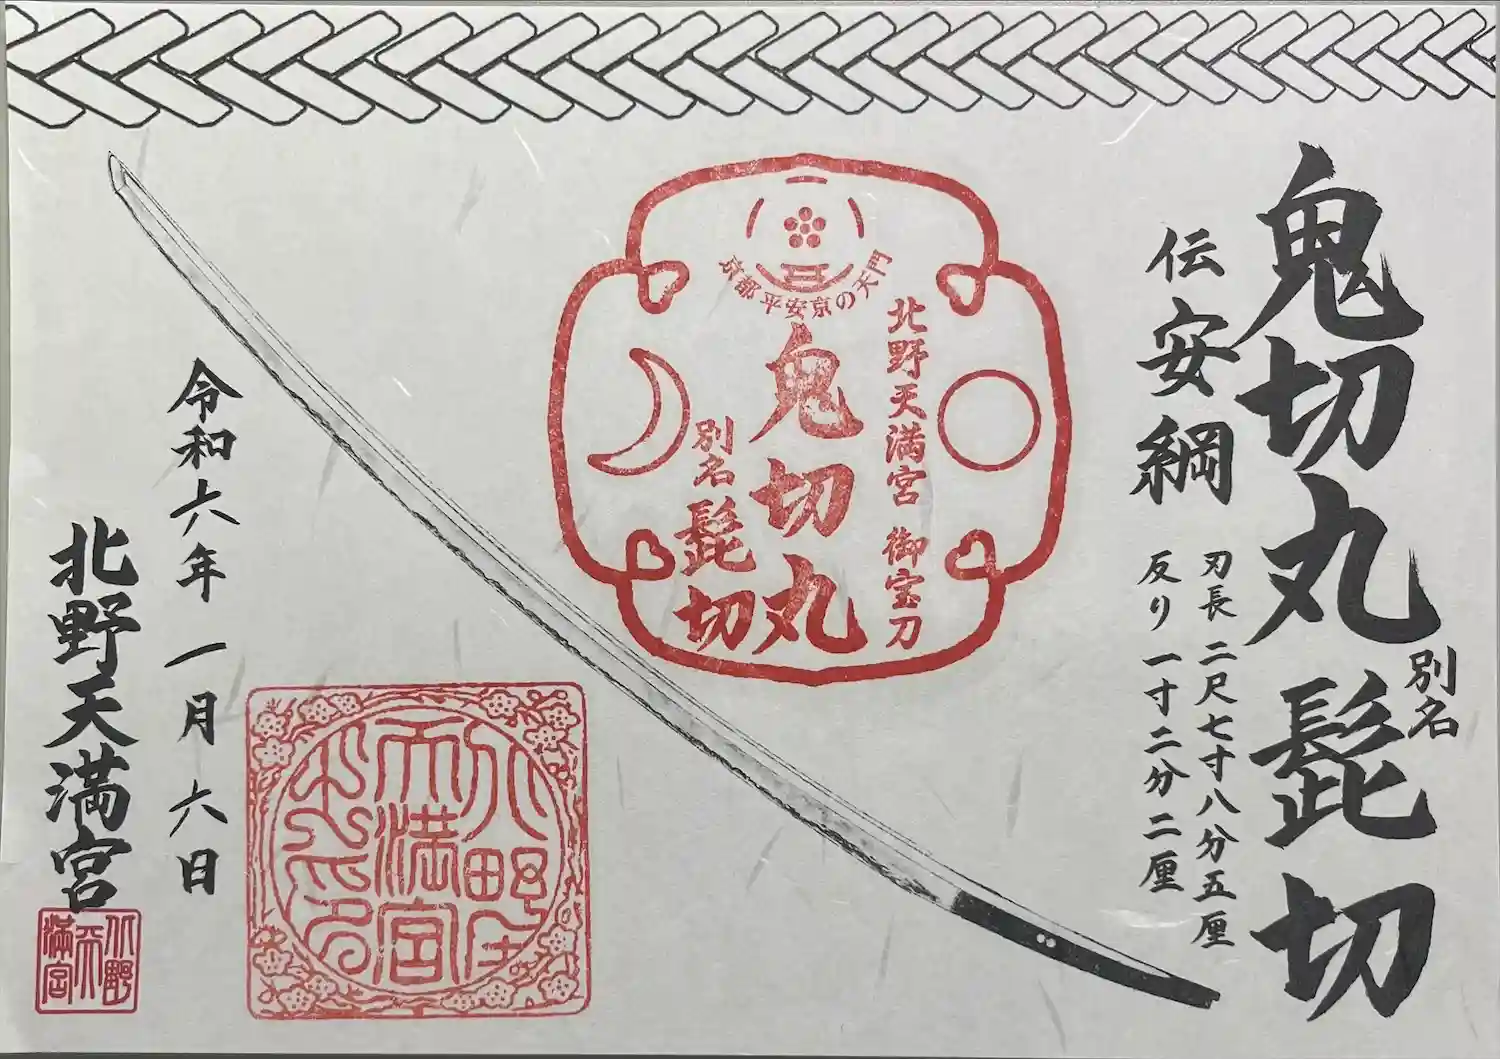 鬼切丸
別名
髭切
伝安綱
刃長 二尺七寸八分五厘
反り 一寸二分二厘
京都平安京の天門
北野天満宮 御宝刀
鬼切丸
別名
髭切
北野
天満宮
之印
令和六年 一月 六日
北野天満宮
北野
天
満宮